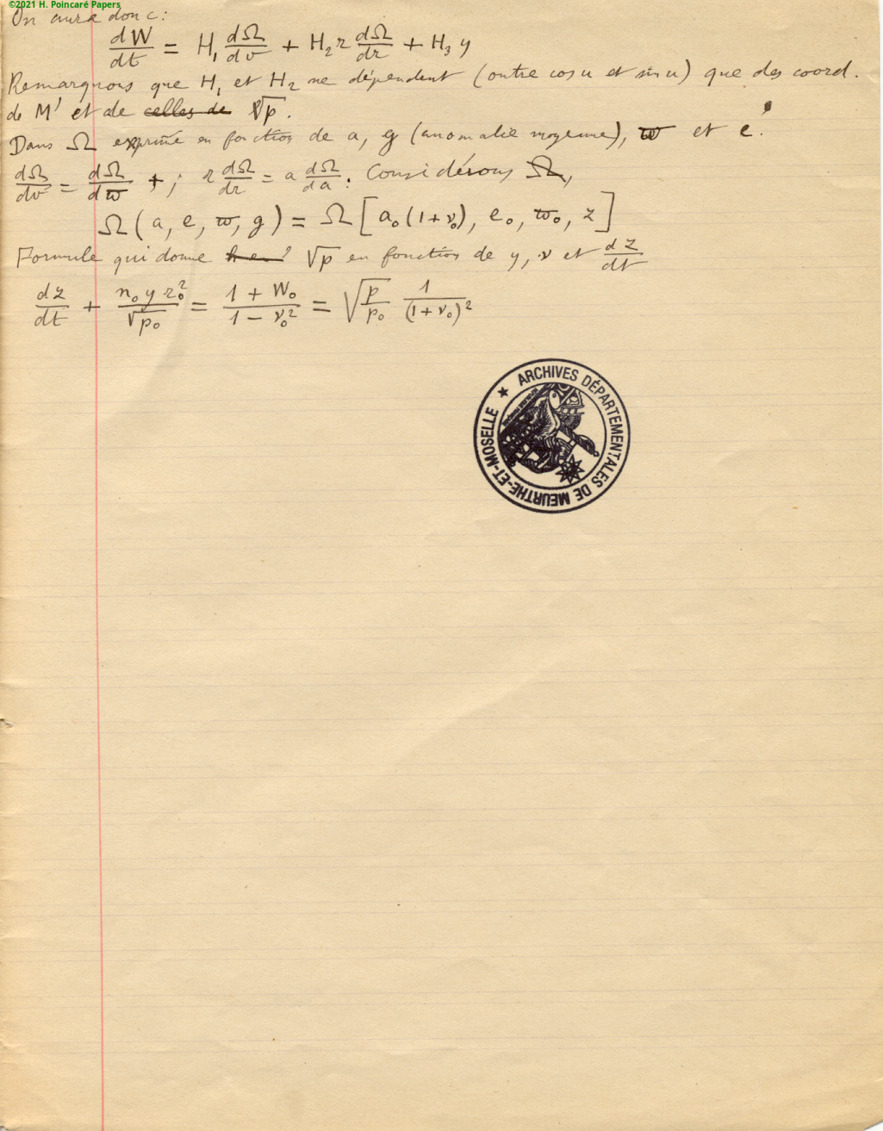 ©2021 H. Poincaré Papers
On aura donc:
dW/dt = H₁ dΩ/dv + H₂ r dΩ/dr + H₃ y
Remarquons que H₁ et H₂ ne dépendent (outre cos u et sin u) que des coord.
de M' et de celles de √p.
Dans Ω exprimé en fonction de a, g (anomalie moyenne), ϖ et e.
dΩ/dv = dΩ/dϖ ; r dΩ/dr = a dΩ/da. Considérons Ω,
Ω(a, e, ϖ, g) = Ω[a₀(1+ν₀), e₀, ϖ₀, z]
Formule qui donne √p en fonction de y, ν et dz/dt
dz/dt + n₀ y r₀²/√p₀ = (1 + W₀)/(1 - ν₀²) = √(p/p₀) 1/(1+ν₀)²
★ ARCHIVES DÉPARTEMENTALES DE MEURTHE-ET-MOSELLE